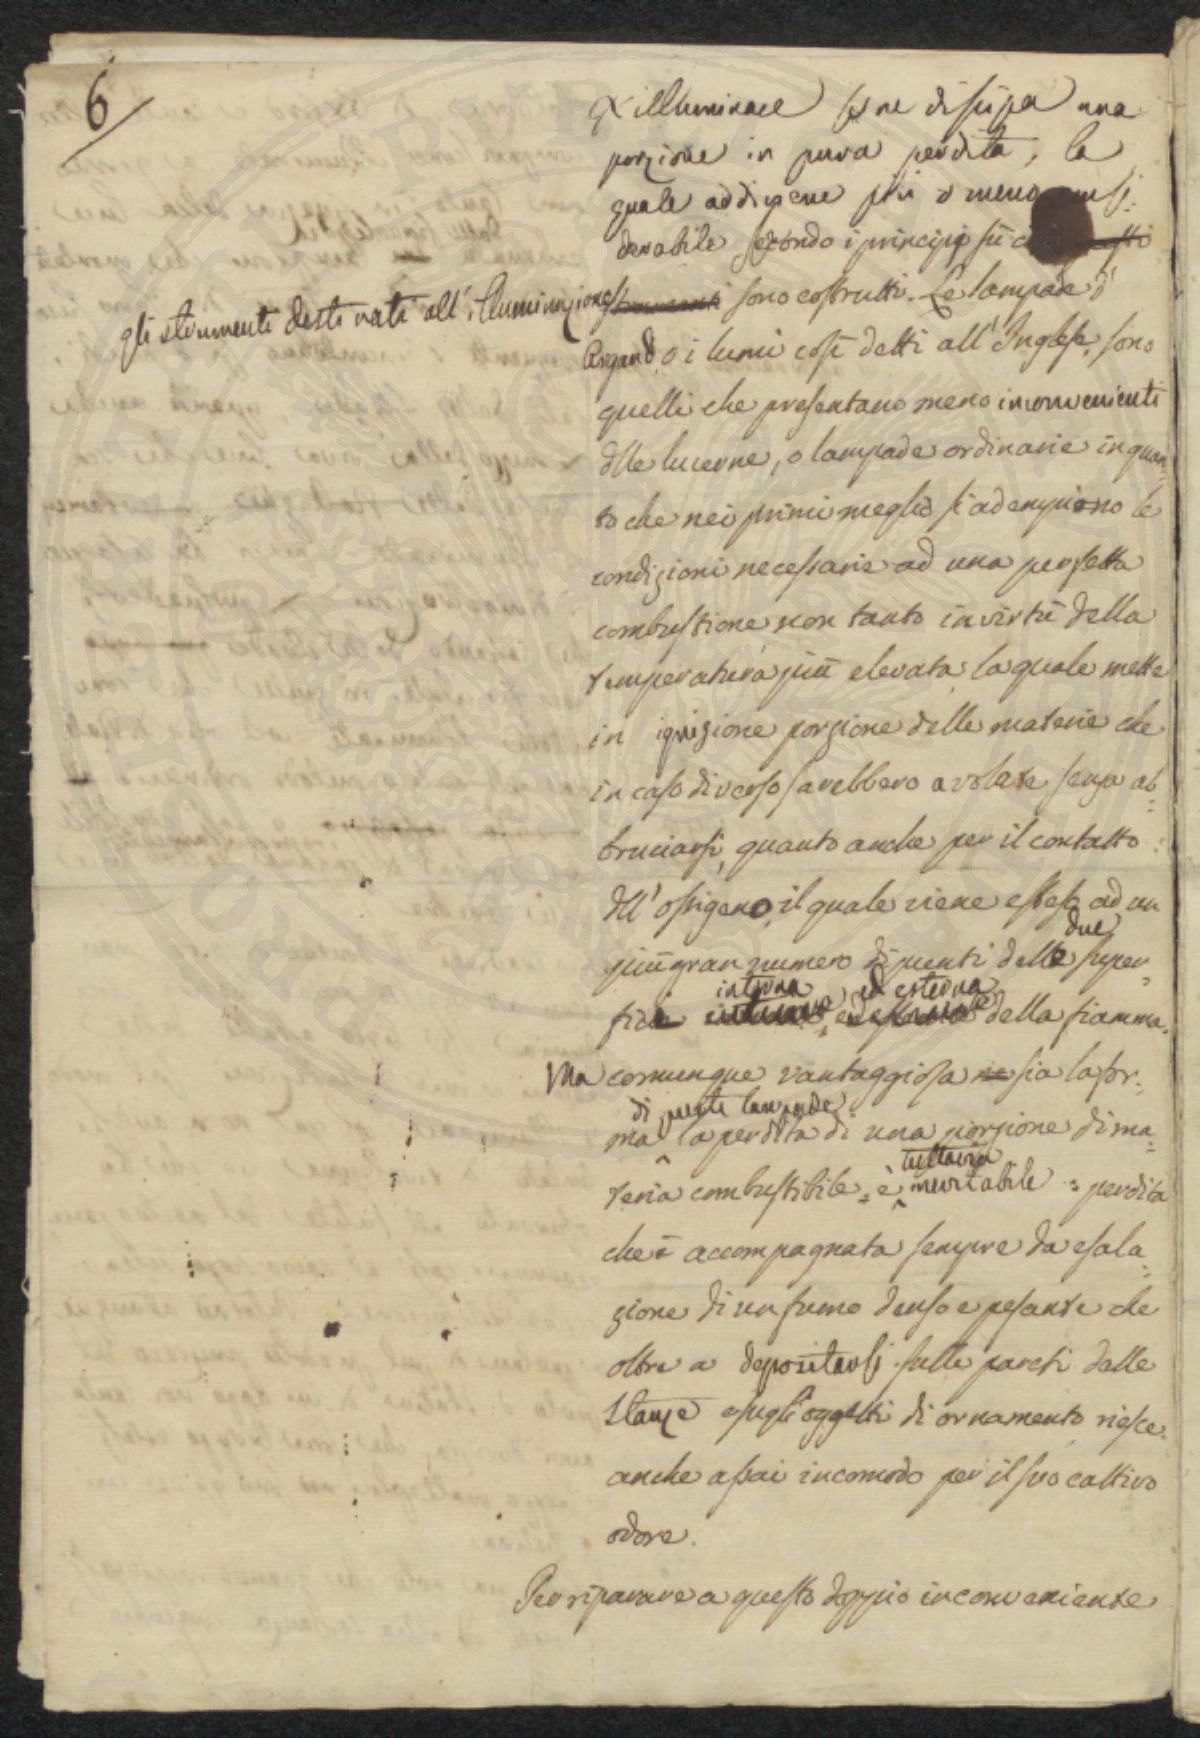 6
illuminare se ne dissipa una
porzione in pura perdita, la
quale addiviene più o meno
derabile secondo i principj su
gli strumenti destinati all'illuminazione
strumenti sono costrutti. Le lampade d'
Argand, o i lumi così detti all'Inglese, sono
quelli che presentano meno inconvenienti
dlle lucerne, o lampade ordinarie in quan-
to che nei primi meglio si adempiono le
condizioni necessarie ad una perfetta
combustione non tanto in virtù della
temperatura più elevata, la quale mette
in ignizione porzione delle materie che
in caso diverso sarebbero a volate senza ab=
bruciarsi, quanto anche per il contatto
dll'ossigeno, il quale viene esteso ad un
due
più gran numero di punti delle super-
interna, ed esterna
fizie della fiamma.
Ma comunque vantaggiosa ne sia la for-
di queste lampade
ma la perdita di una porzione di ma=
tuttavia
teria combustibile, è inevitabile = perdita
che è accompagnata sempre da esala=
zione di un fumo denso e pesante che
oltre a depositarsi sulle pareti delle
stanze e sugli oggetti di ornamento riesce
anche assai incomodo per il suo cattivo
odore.
Per riparare a questo doppio inconveniente